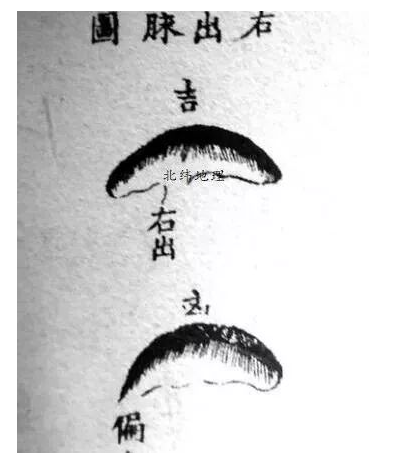 右出脉圖
吉
北纬地理
右出
凶
偏